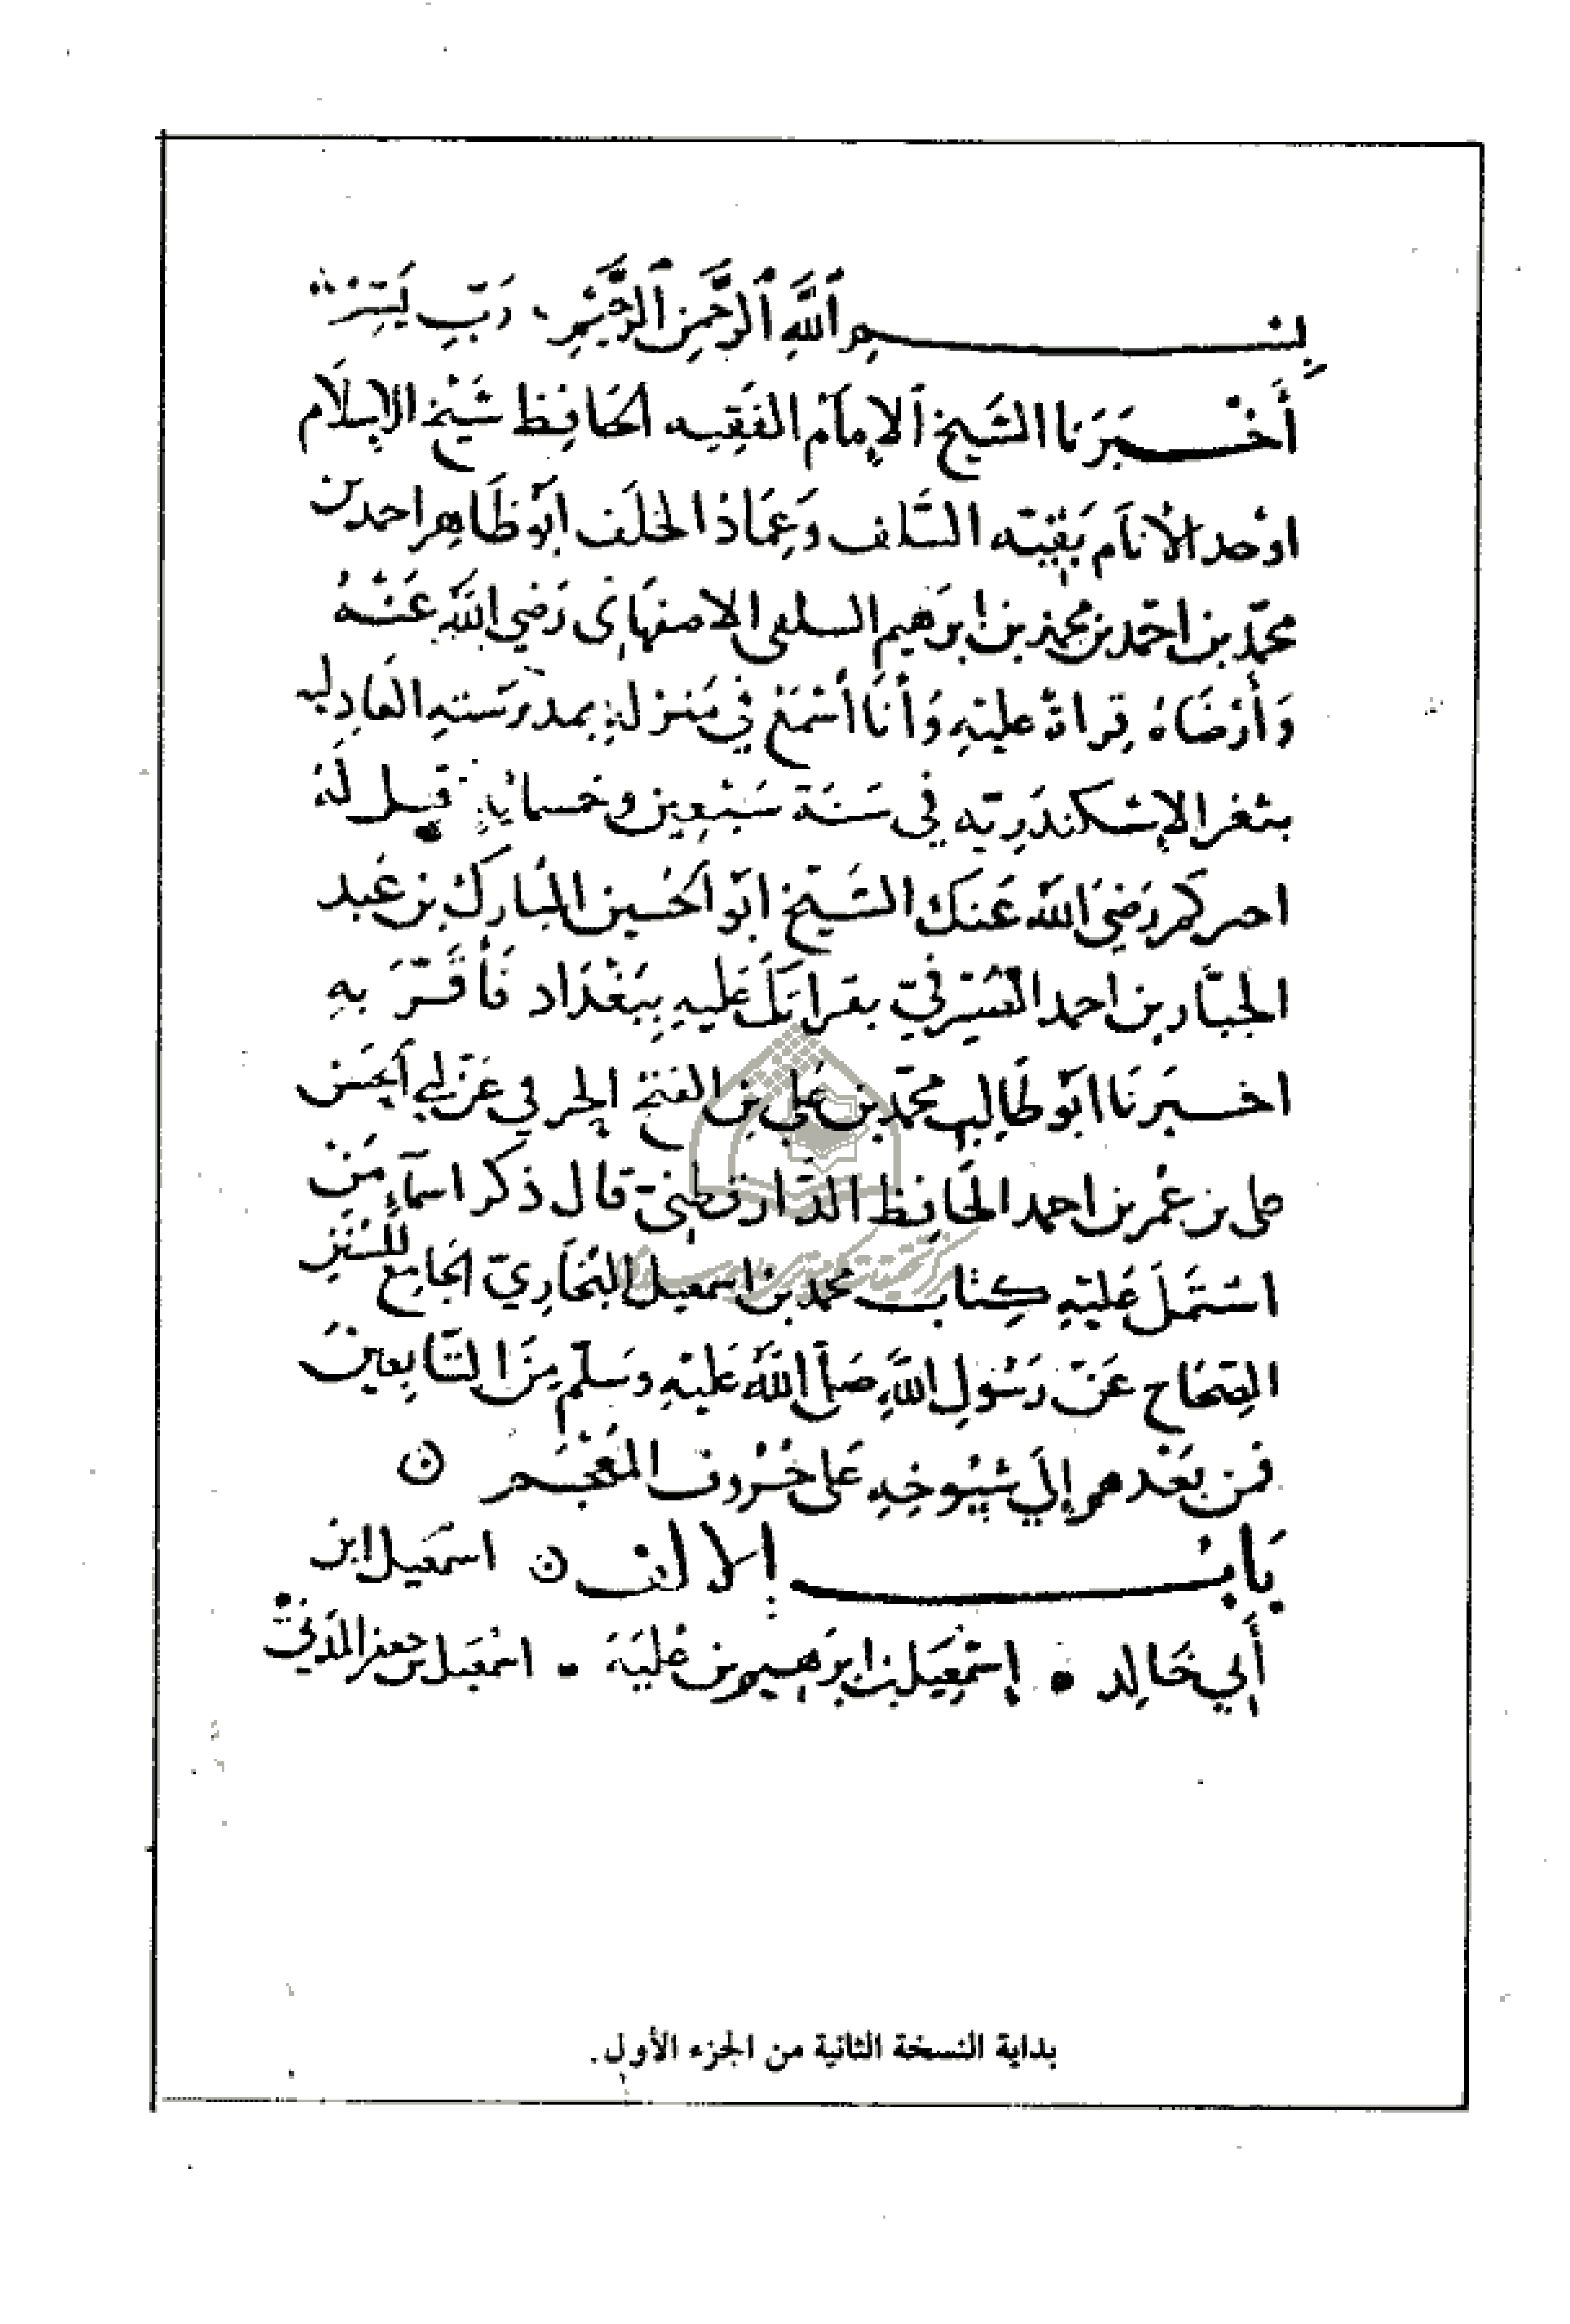 بِسْمِ ٱللَّهِ ٱلرَّحْمَنِ ٱلرَّحِيْمِ، رَبِّ يَسِّرْ
أَخْبَرَنَا الشَّيخ الإمَامُ الفَقِيه الحَافِظ شَيْخ الإسْلَام
اوْحد الأنَام بَقِيّته السَّلف وَعِمَادُ الخلَف ابُو طَاهِر احمد بن
محمّد بن احمّد بن محمد بن ابرَهيم السلفى الاصفهَانى رَضي اللَّه عَنْهُ
وَأَرْضَاهُ قِراةً عليْهِ وَأَنَا أسْمَعُ فِي مَنزلهِ بمدْرَستهِ العَادِليه
بثغر الإسْكندَرِيّه في سَنَة سَبْعِين وخمسمايةٍ قيل لَهُ
اخبركم رَضِيَ الله عَنك الشَّيْخ ابُو الحُسين المُبارك بن عَبد
الجبَّار بن احمد الصَّيْرَفيّ بقراتك عَليهِ بِبَغْدَاد فَأَقَرَّ بهِ
اخبرَنَا ابُو طَالِب محمَّد بن عَلي بن الفتح الحربي عَن ابي الحَسَن
على بن عُمر بن احمد الحَافِظ الدَّارقطنيّ قال ذكر اسمَآءِ مَنْ
اشتَمَلَ عَليْهِ كِتاب محمد بن اسمعيل البُخَارِيّ الجَامِع للسُّنَنِ
الصِّحَاح عَنْ رَسُولِ اللَّهِ صَلَّى اللَّهُ عَليْهِ وسَلّم مِنَ التَّابِعِينَ
فمَن بَعْدهم إلَى شيُوخِهِ عَلَى حُرُوف المُعْجَم ن
بَابُ الالف ن اسمَعِيل ابن
أَبِي خَالِد • إسْمَعِيل بن ابرَهيم بن عُليَة • اسْمَعيل بن جعفر المَدَنيّ
بداية النسخة الثانية من الجزء الأول.